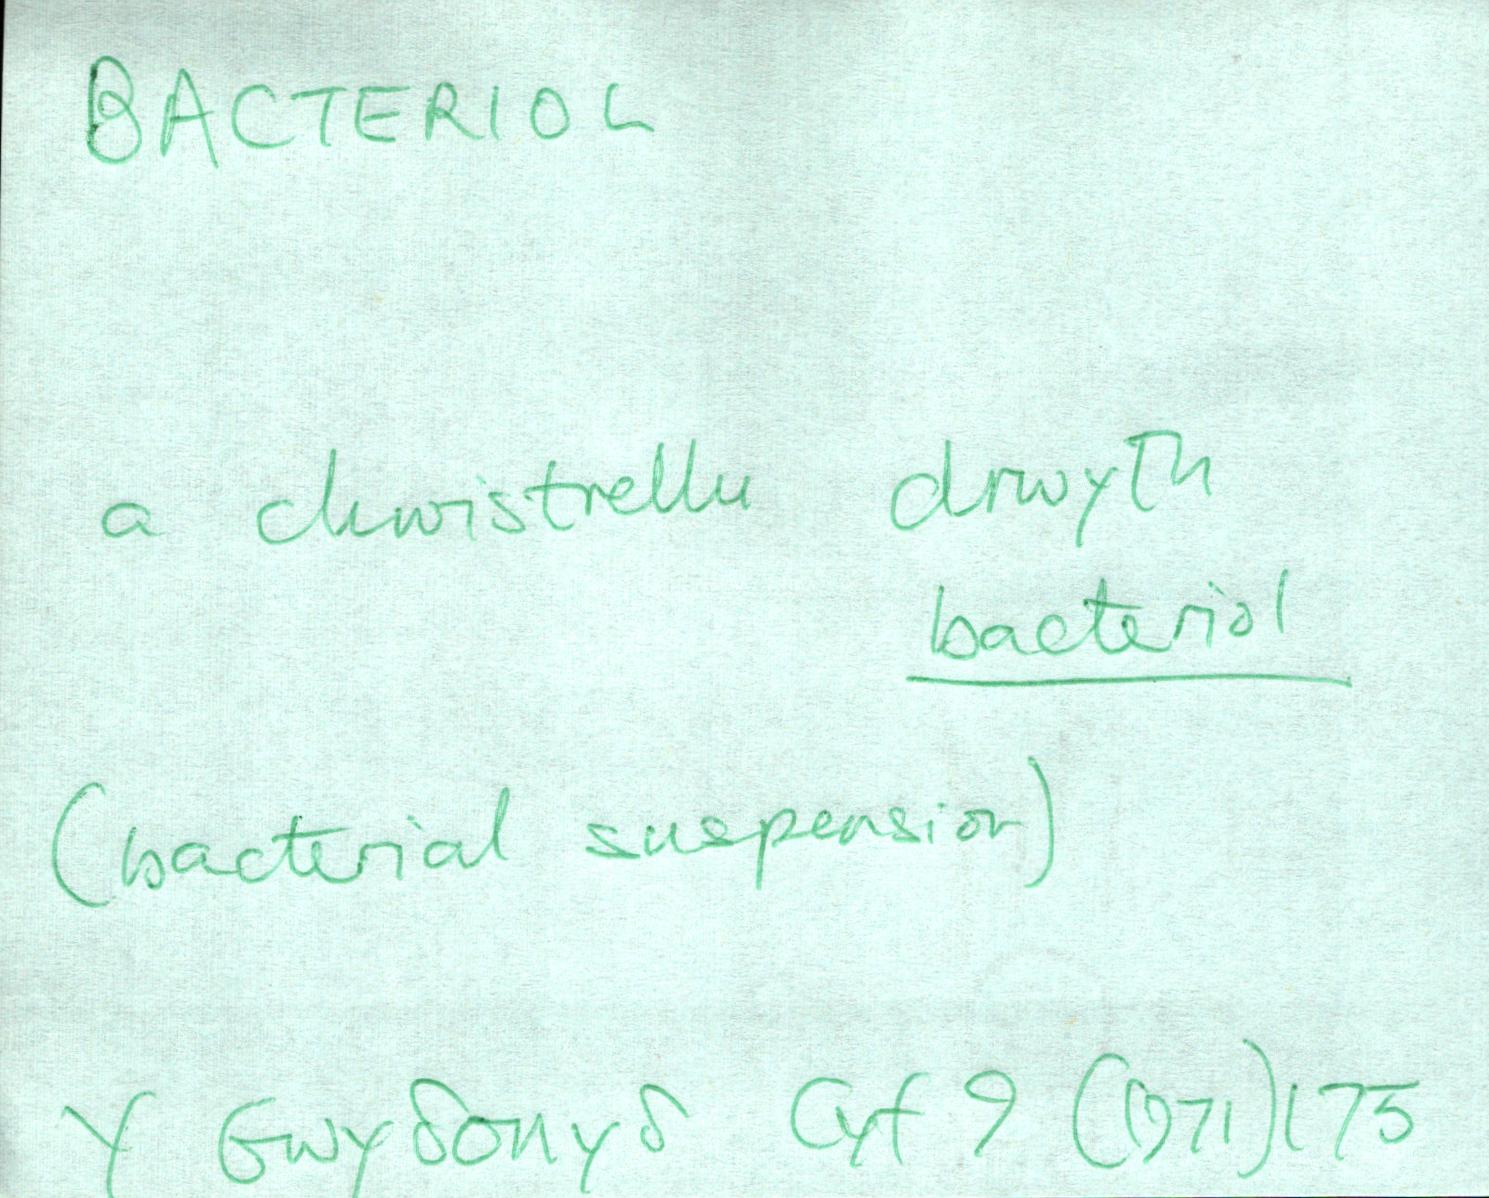 BACTERIOL
a chwistrellu drwyth
bacteriol
(bacterial suspension)
Y Gwyδonyδ Cyf 9 (1971) 175